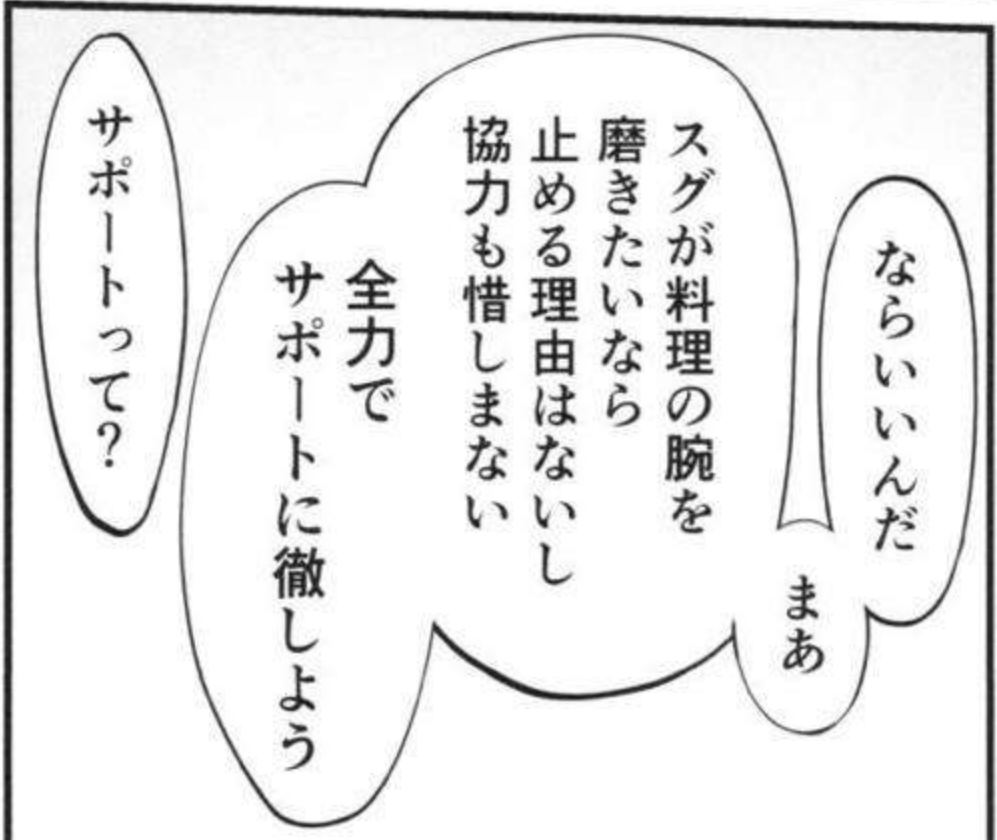 ならいいんだ
まあ
スグが料理の腕を
磨きたいなら
止める理由はないし
協力も惜しまない
全力で
サポートに徹しよう
サポートって？